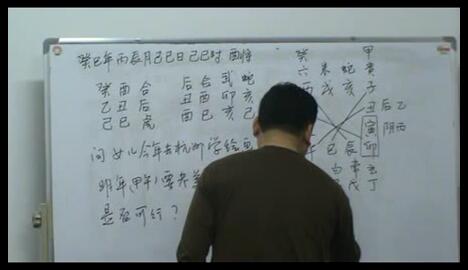 癸巳年丙辰月己巳日己巳时 酉将
癸 甲
六 朱 蛇 贵
癸酉合 后合武蛇
酉 戌 亥 子
乙丑后 丑酉卯亥
丑后乙
己巳虎 酉巳亥己
寅阴丙
问女儿今年去杭州学绘画
巳 辰 卯
明年(甲午)要考美
是否可行?
戊 丁